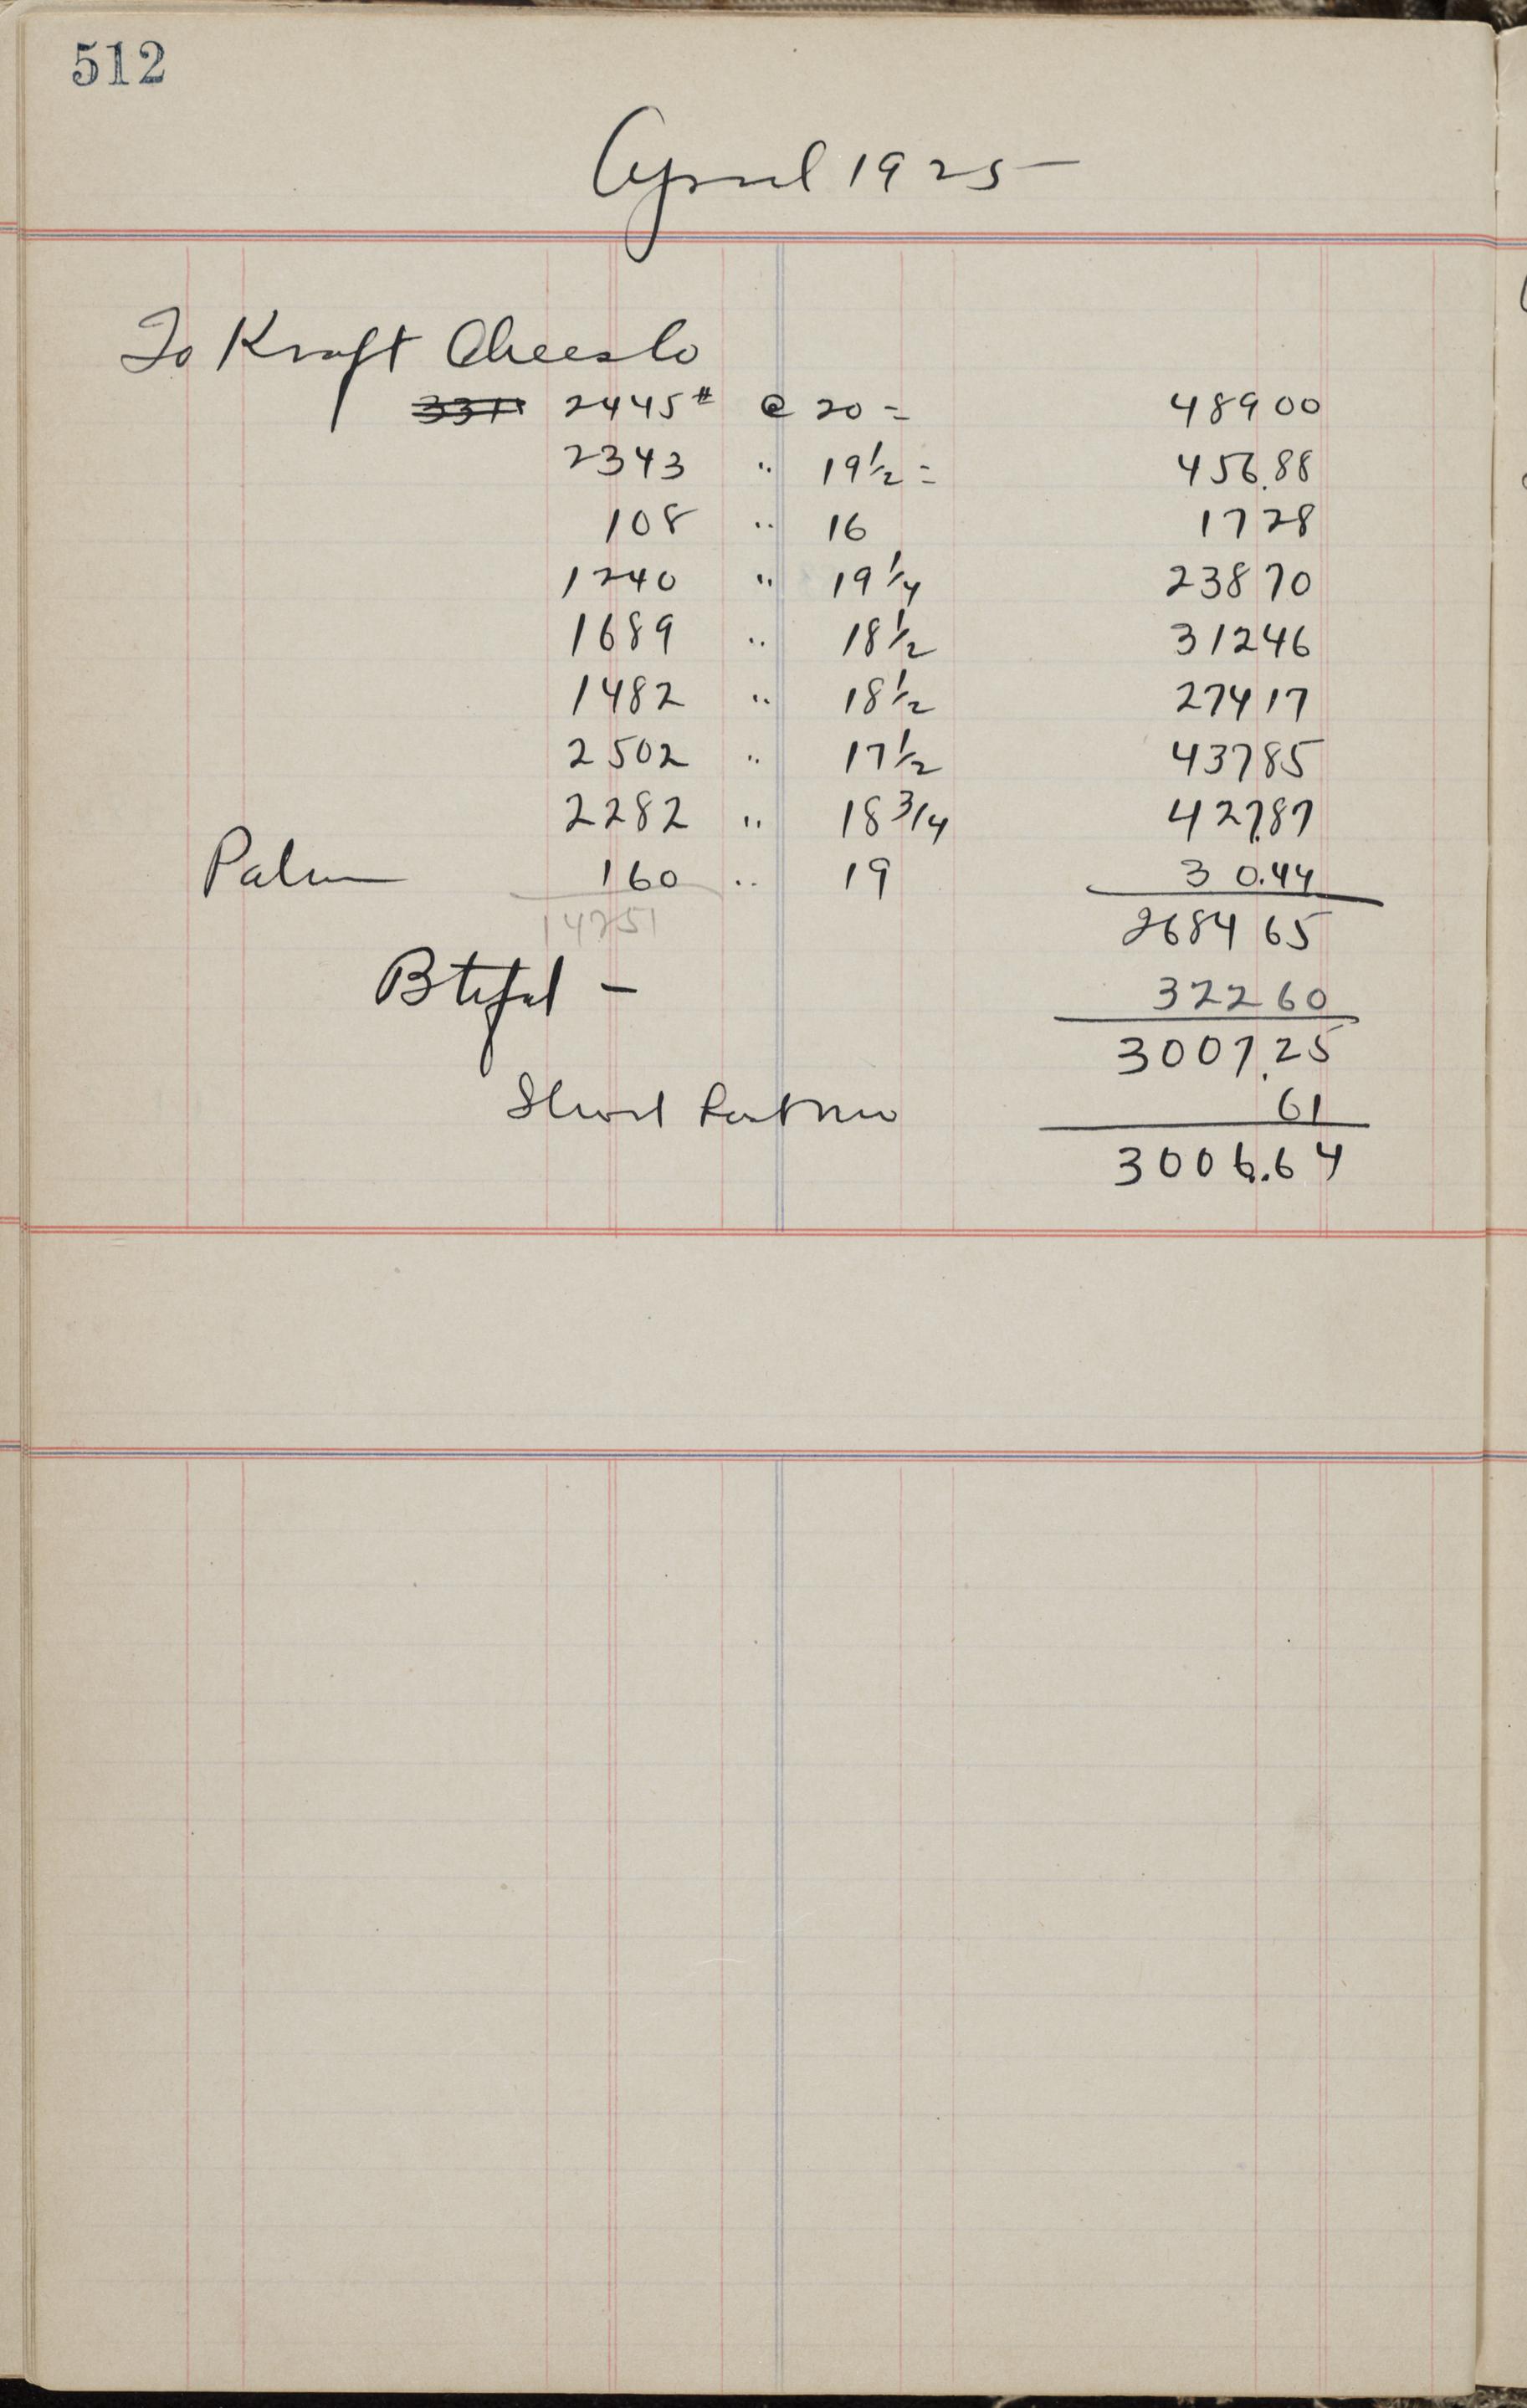 512
April 1925
To Kraft Cheese Co
2445# @ 20 = 489 00
2343 " 19 1/2 = 456.88
108 " 16 17 28
1240 " 19 1/4 238 70
1689 " 18 1/2 312 46
1482 " 18 1/2 274 17
2502 " 17 1/2 437 85
2282 " 18 3/4 427.87
160 " 19 30.44
14251 2684 65
322 60
3007.25
Short 61
3006.64